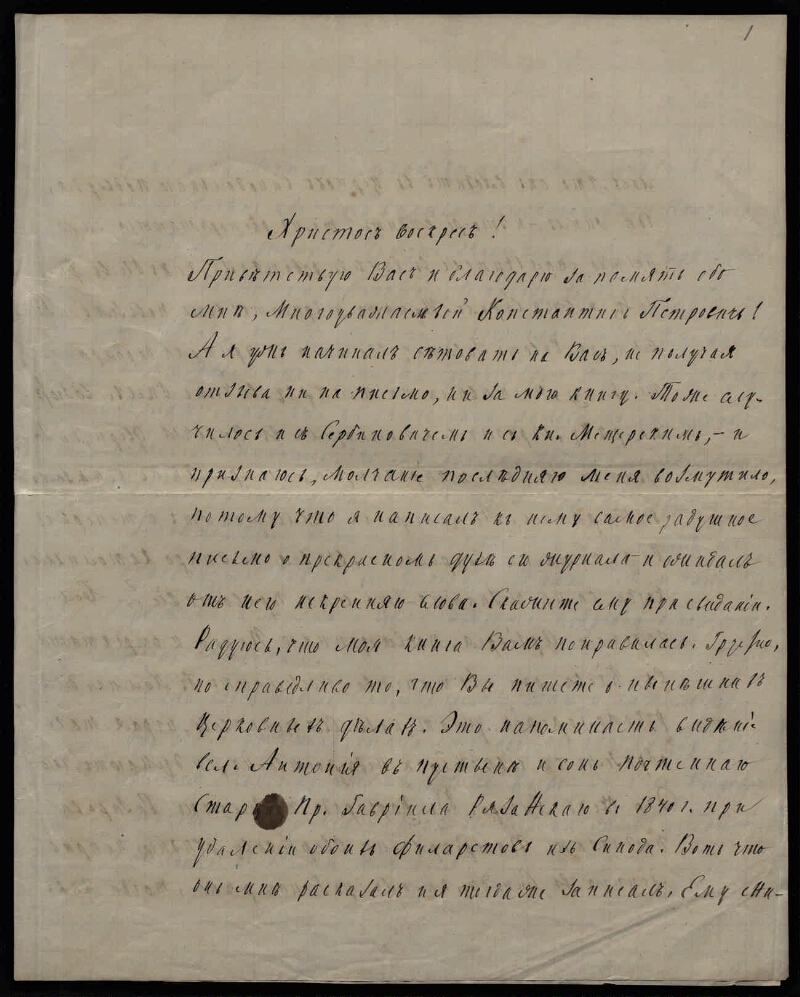 1
Христосъ воскресъ!
Привѣтствую Васъ и благодарю за память обо
мнѣ, Многоуважаемый Константинъ Петровичъ!
А я уже начиналъ сѣтовать на Васъ, не получая
отзыва ни на письмо, ни за мою книгу. Тоже слу-
чилось и съ Сербиновичемъ и съ Кн. Мещерскимъ, – и
признаюсь, молчаніе послѣдняго меня возмутило,
потому что я написалъ къ нему самое радушное
письмо о прекрасномъ духѣ его журнала и ожидалъ
отъ него искренняго слова. Скажите ему при свиданіи.
Радуюсь, что моя книга Вамъ понравилась. Грустно,
но справедливо то, что Вы пишете о нынѣшнихъ
Церковныхъ дѣлахъ. Это напоминаетъ видѣніе
вел. Антонія въ пустынѣ и сонъ почтеннаго
Пр. Гавріила Рязанскаго въ 1840 г. при
удаленіи обоихъ Филаретовъ изъ Синода. Вотъ что
онъ мнѣ расказалъ и я тогдаже записалъ. Ему сни-